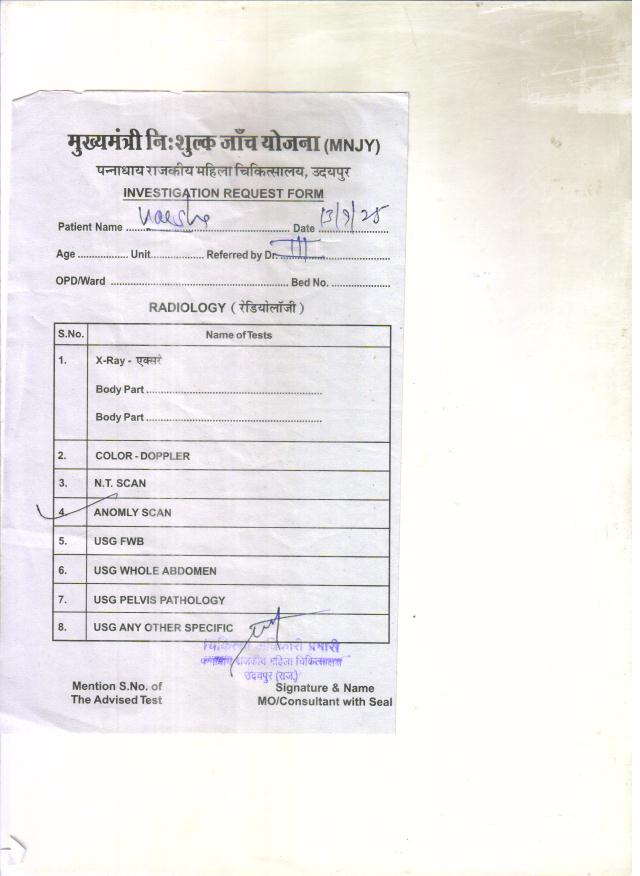 मुख्यमंत्री निःशुल्क जाँच योजना (MNJY)
पन्नाधाय राजकीय महिला चिकित्सालय, उदयपुर
INVESTIGATION REQUEST FORM
Patient Name ........ Date 13/9/25
Age ........ Unit ........ Referred by Dr. ........
OPD/Ward ........ Bed No. ........
RADIOLOGY ( रेडियोलॉजी )
S.No. Name of Tests
1. X-Ray - एक्सरे
Body Part ........
Body Part ........
2. COLOR - DOPPLER
3. N.T. SCAN
4. ANOMLY SCAN
5. USG FWB
6. USG WHOLE ABDOMEN
7. USG PELVIS PATHOLOGY
8. USG ANY OTHER SPECIFIC
चिकित्सा अधिकारी प्रभारी
पन्नाधाय राजकीय महिला चिकित्सालय
उदयपुर (राज.)
Mention S.No. of Signature & Name
The Advised Test MO/Consultant with Seal